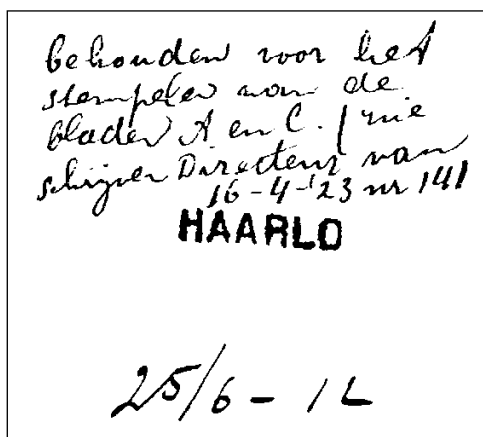 behouden voor het
stempelen van de
bladen A en C. / zie
schrijven Directeur van
16-4-'23 nr 141
HAARLO
25/6 - 12